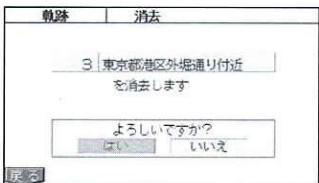 軌跡 消去
3 東京都港区外堀通り付近
を消去します
よろしいですか?
はい いいえ
戻る